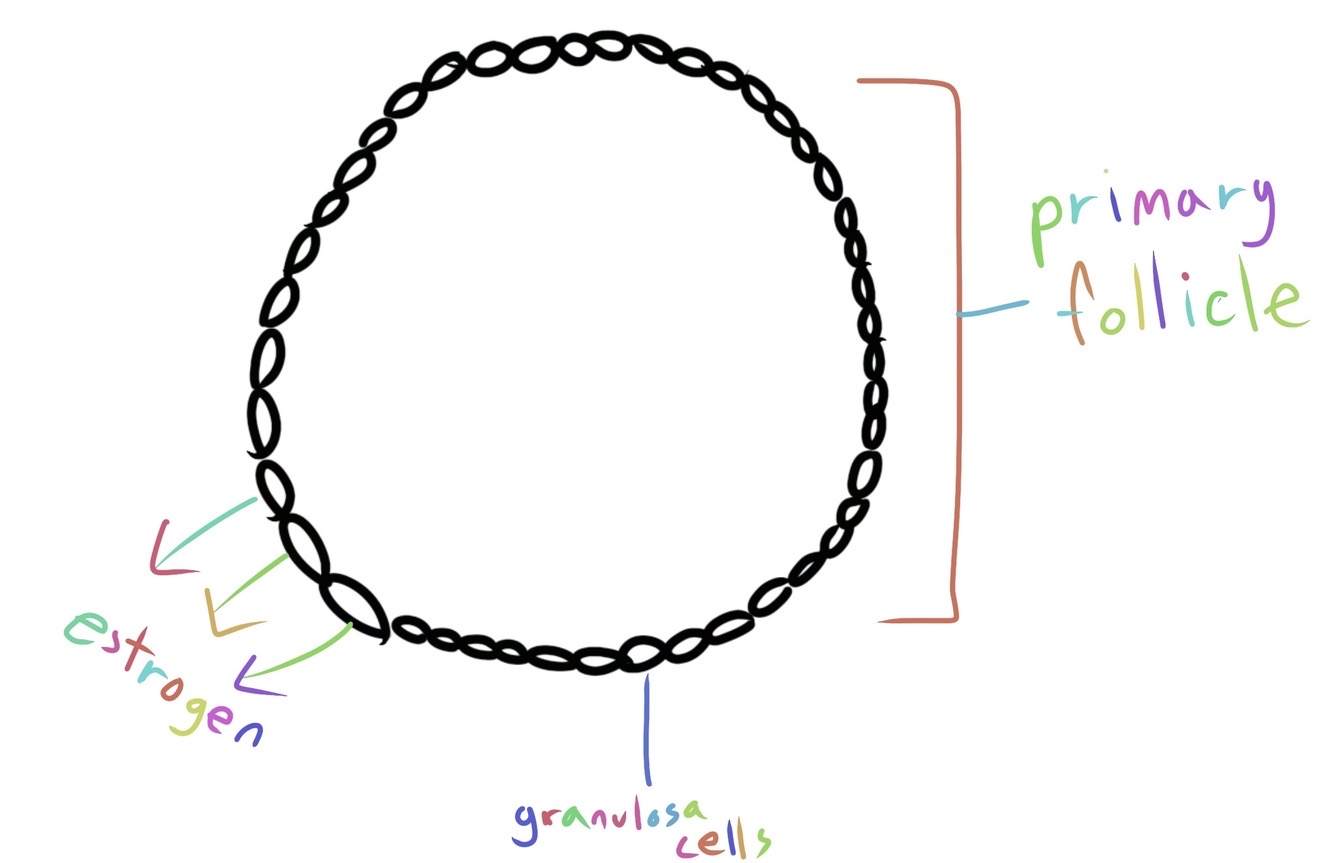 primary
follicle
estrogen
granulosa
cells